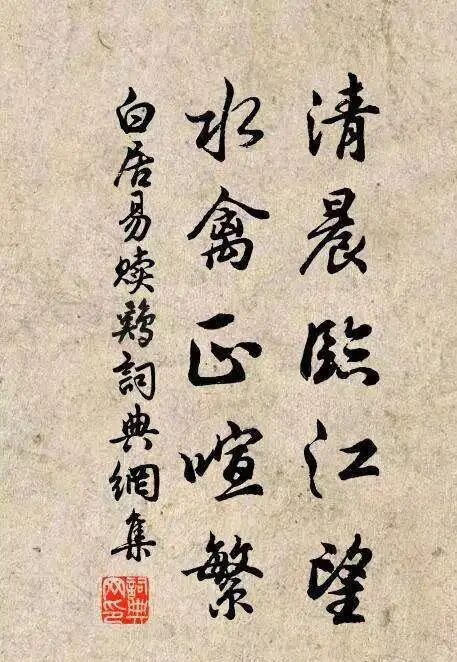 清晨臨江望
水禽正喧繁
白居易赎鸡詞典網集
詞典网印